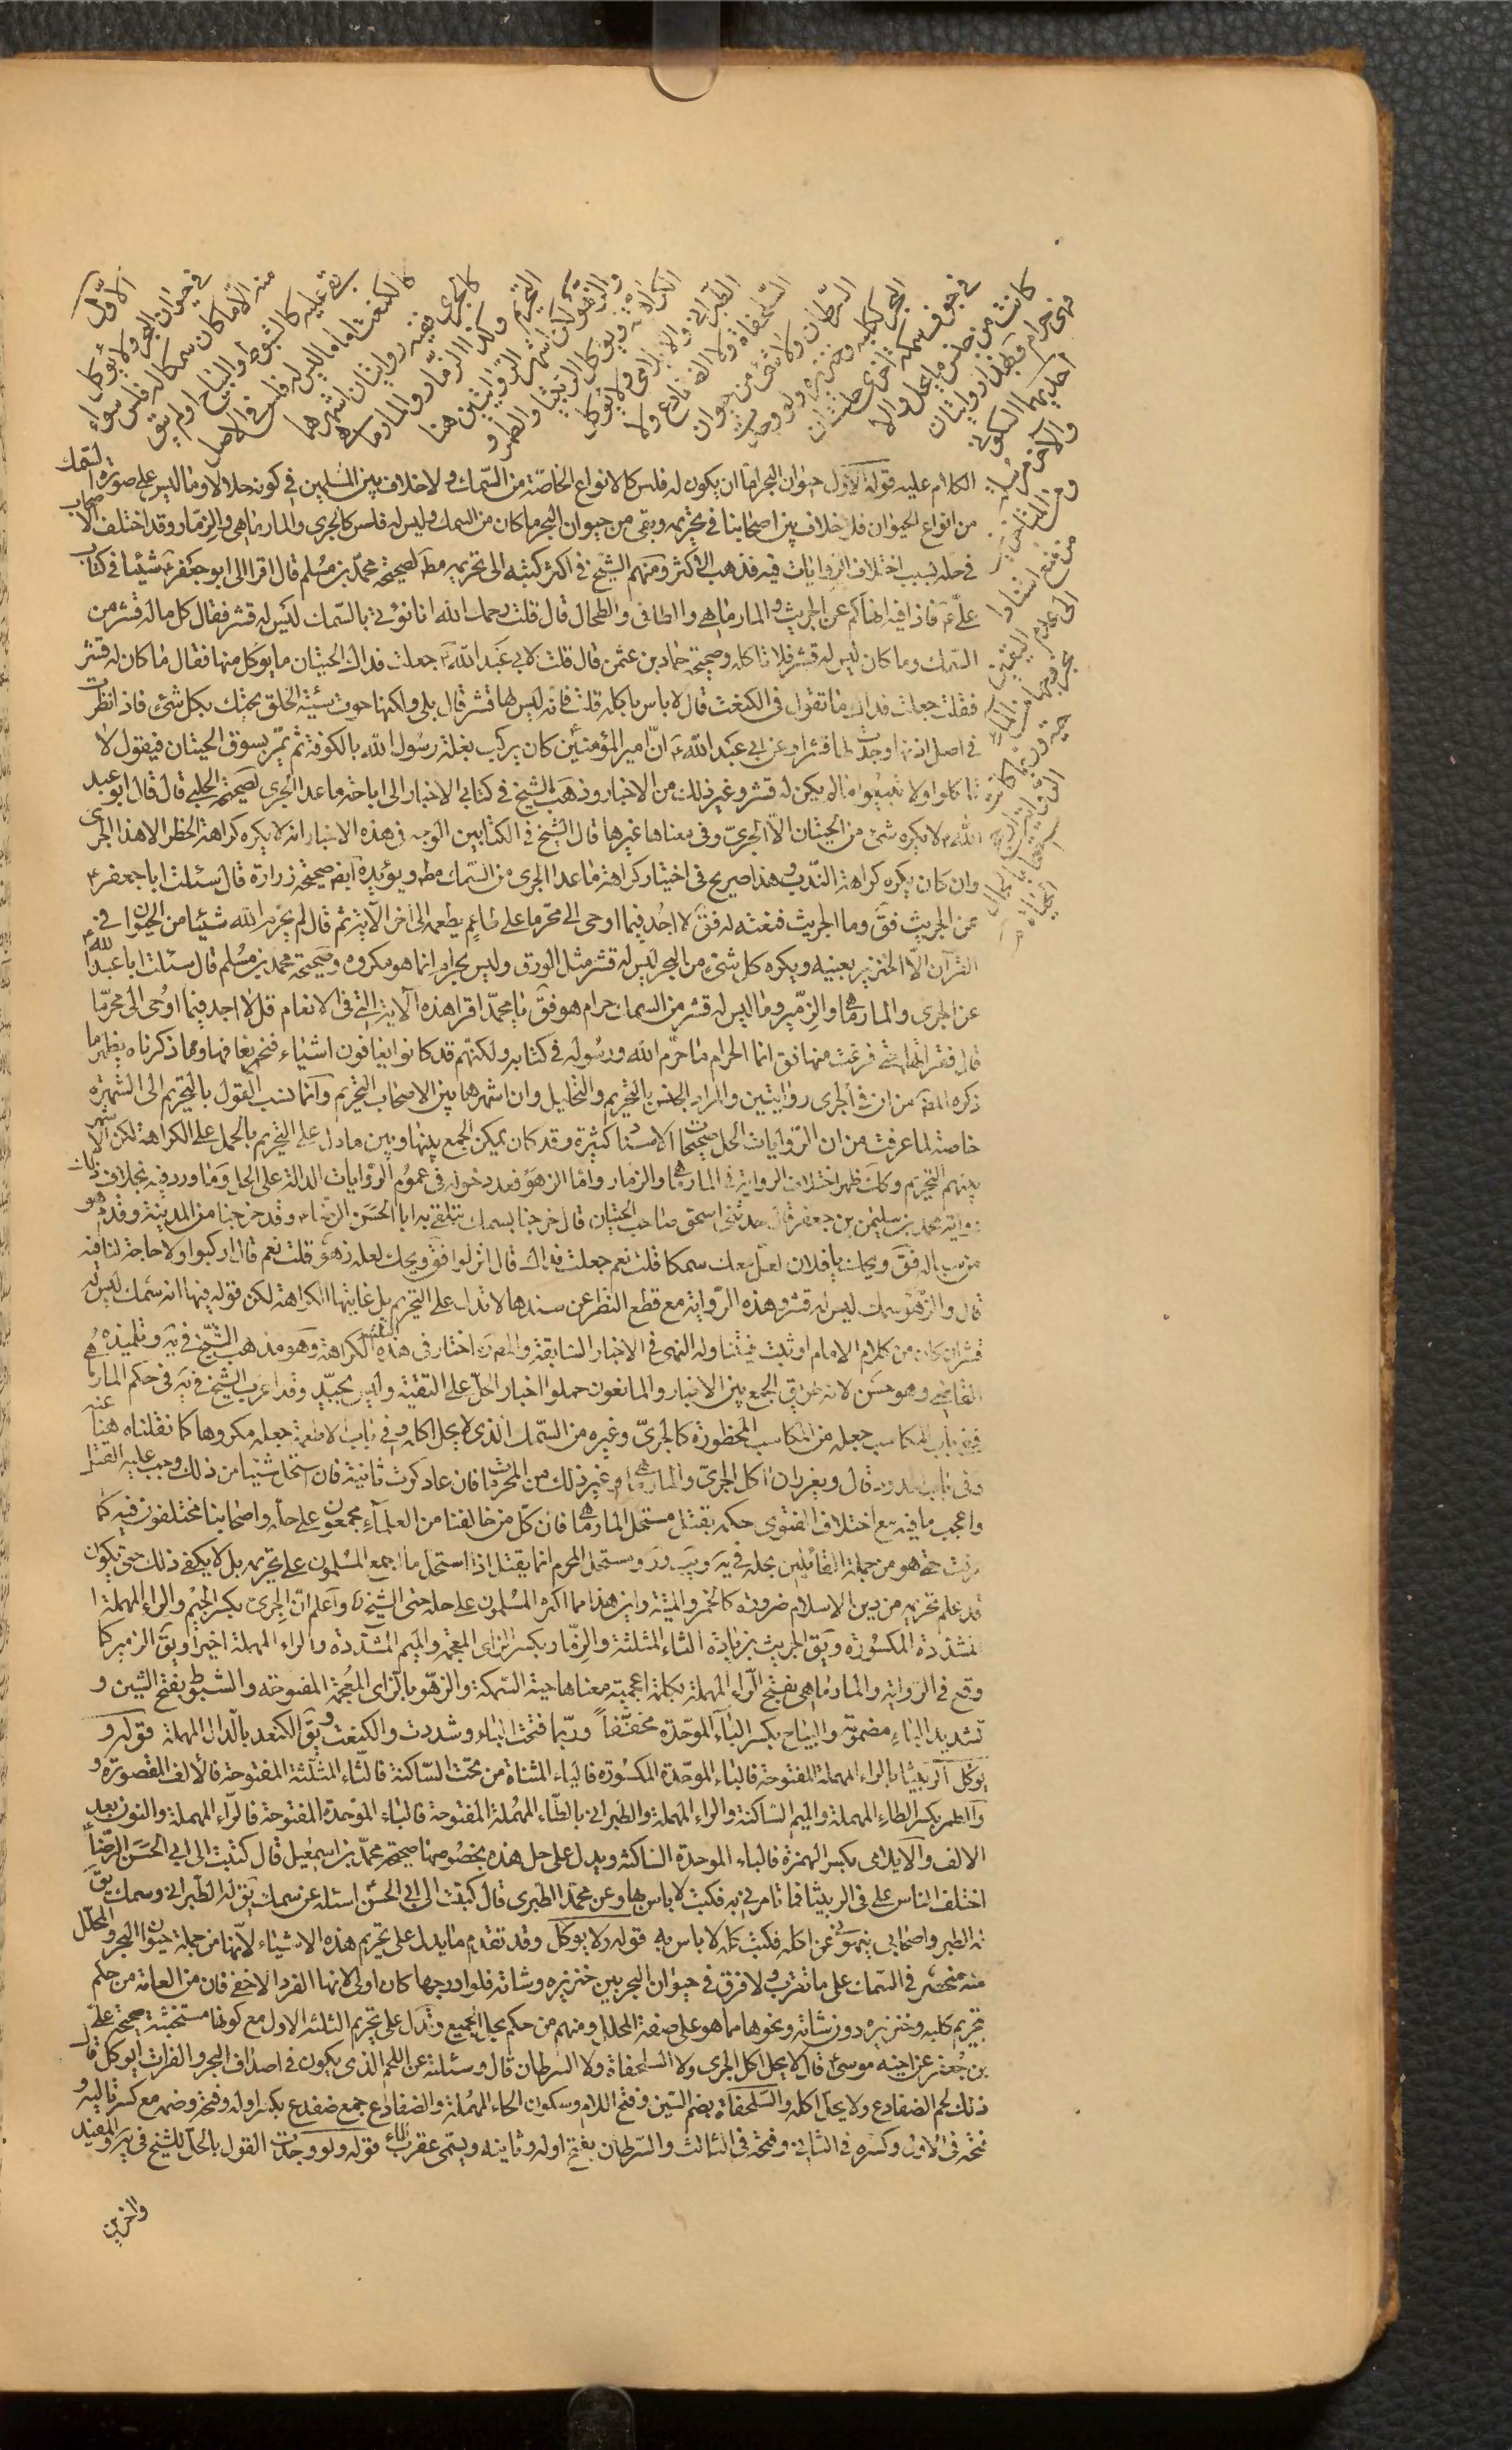 الأوّل
في حيوان البحر ولا يؤكل
منه الا ما كان سمكا له فلس سواء
بقي عليه كالشبوط والبياح او لم يبق
كالكنعت اما ما ليس له فلس في الاصل
كالجري ففيه روايتان اشهرهما
التحريم وكذا الزمار والمارماهي
والزهو لكن اشهر الروايتين هنا
الكراهة ويؤكل الربيثا والطمر و
الطبراني والابلامي ولا يؤكل
السلحفاة ولا الضفادع ولا
السرطان ولا شئ من حيوان
البحر ككلبه وخنزيره ولو وجدت
في جوف سمكة اخرى حلت ان
كانت من جنس ما يحل والا
فهي حرام وبهذا روايتان
احديهما السكوني
والاخرى مرسلة
ومن المتاخرين
من منع استنادا
الى عدم اليقين
الكلام عليه قوله الاول حيوان البحر اما ان يكون له فلس كالانواع الخاصّة من السّمك ولا خلاف بين المسلمين في كونه حلالا وما ليس على صورة السمك
من انواع الحيوان فلا خلاف بين اصحابنا في تحريمه وبقي من حيوان البحر ما كان من السمك وليس له فلس كالجري والمارماهي والزمّار وقد اختلف الاصحاب
في حله بسبب اختلاف الروايات فيه فذهب الاكثر ومنهم الشيخ في اكثر كتبه الى تحريمه مط لصحيحة محمّد بن مسلم قال اقرانى ابو جعفر ع شيئا في كتاب
علي ع فاذا فيه انهاكم عن الجريث والمارماهي والطافي والطحال قال قلت رحمك الله انا نؤتى بالسّمك ليس له قشر فقال كل ما له قشر من
السمك وما كان ليس له قشر فلا تاكله وصحيحة حماد بن عثمن قال قلت لابي عبد الله ع جعلت فداك الحيتان ما يؤكل منها فقال ما كان له قشر
فقلت جعلت فداك ما تقول في الكنعت قال لا باس باكله قلت فانه ليس لها قشر قال بلى ولكنها حوت سيئة الخلق تحتك بكل شئ فاذا نظرت
في اصل اذنها وجدت لها قشرا وعن ابي عبد الله ع انّ امير المؤمنين كان يركب بغلة رسول الله بالكوفة ثم يمرّ بسوق الحيتان فيقول لا
تاكلوا ولا تبيعوا ما لم يكن له قشر وغير ذلك من الاخبار وذهب الشيخ في كتابي الاخبار الى اباحة ما عدا الجري لصحيحة الحلبي قال قال ابو عبد
الله ع لا يكره شئ من الحيتان الّا الجريّ وفي معناها غيرها قال الشيخ في الكتابين الوجه في هذه الاخبار انه لا يكره كراهة الحظر الا هذا الجرى
وان كان يكره كراهة الندب وهذا صريح في اختيار كراهة ما عدا الجرى من السّمك مط ويؤيده ايض صحيحة زرارة قال سئلت ابا جعفر ع
عن الجريث فق وما الجريث فنعته له فق لا اجد فيما اوحي الي محرّما على طاعم يطعمه الى اخر الآية ثم قال لم يحرّم الله شيئا من الحيوان في
القرآن الّا الخنزير بعينه ويكره كل شئ من البحر ليس له قشر مثل الورق وليس بحرام انما هو مكروه وصحيحة محمد بن مسلم قال سئلت ابا عبد الله ع
عن الجري والمارماهي والزمّير وما ليس له قشر من السمك حرام هو فق يا محمّد اقرا هذه الآية التي في الانعام قل لا اجد فيما اوحى الي محرّما
قال فقراتها حتى فرغت منها فق انما الحرام ما حرّم الله ورسوله في كتابه ولكنهم قد كانوا يعافون اشياء فنحن نعافها ومما ذكرناه يظهر ما
ذكره المص من ان في الجري روايتين والمراد الجنس بالتحريم والتحليل وان اشهرها بين الاصحاب التحريم وانما نسب القول بالتحريم الى الشهرة
خاصة لما عرفت من ان الروايات الحل صحيحات الاسناد كثيرة وقد كان يمكن الجمع بينها وبين ما دل على التحريم بالحمل على الكراهة لكن الاشهر
بينهم التحريم وكك ظهر اختلاف الرواية في المارماهي والزمار واما الزهو فبعد دخوله في عموم الروايات الدالة على الحل وما ورد فيه بخلاف ذلك
رواية محمد بن سليمن بن جعفر قال حدثني اسحق صاحب الحيتان قال خرجنا بسمك نتلقى به ابا الحسن الرضا ع وقد خرجنا من المدينة وقدم هو
من سفر له فق ويحك يا فلان لعل معك سمكا قلت نعم جعلت فداك قال انزلوا فق ويحك لعله زهو قلت نعم قال اركبوا ولا حاجة لنا فيه
قال والزهو سمك ليس له قشر وهذه الرّواية مع قطع النظر عن سندها لا تدل على التحريم بل غايتها الكراهة لكن قوله فيها انه سمك ليس له
قشر ان كان من كلام الامام او ثبت فيتناوله النهى في الاخبار السّابقة والمص ره اختار في هذه الثلثة الكراهة وهو مذهب الشيخ في يه وتلميذه
القاضي وهو حسن لانه طريق الجمع بين الاخبار والمانعون حملوا اخبار الحلّ على التقية وليس بجيّد وقد اغرب الشيخ في يه في حكم المارماهي
ففي باب المكاسب جعله من المكاسب المحظورة كالجريّ وغيره من السّمك الذي لا يحل اكله وفي باب الاطعمة جعله مكروها كما نقلناه هنا عنه
وفي باب الحدود قال ويعزر ان اكل الجريّ والمارماهي او غير ذلك من المحرمات فان عاد كوت ثانية فان استحل شيئا من ذلك وجب عليه القتل
واعجب ما فيه مع اختلاف الفتوى حكمه بقتل مستحل المارماهي فان كلّ من خالفنا من العلماء مجمعون على حله واصحابنا مختلفون فيه كما
عرفت حتى هو من جملة القائلين بحله في يه ويب وصر ومستحل المحرم انما يقتل اذا استحل ما اجمع المسلمون على تحريمه بل لا يكفى ذلك حتى يكون
قد علم تحريمه من دين الاسلام ضرورة كالخمر والميتة واين هذا مما اكثر المسلمون على حله حتى الشيخ ره واعلم انّ الجرى بكسر الجيم والراء المهملة
المشددة المكسورة ويق الجريث بزيادة الثاء المثلثة والزمّار بكسر الزاى المعجمة والميم المشددة والراء المهملة اخيرا ويق الزمير كما
وقع في الرواية والمارماهي بفتح الرّاء المهملة كلمة اعجمية معناها حية السّمكة والزهو بالزاى المعجمة المفتوحة والشبّوط بفتح الشين و
تشديد الباء مضمومة والبياح بكسر الباء الموحّدة مخفّفاً وربّما فتحت الباء وشددت والكنعت ويق الكنعد بالدال المهملة قوله و
يؤكل الربيثا بالراء المهملة المفتوحة فالباء الموحّدة المكسورة فالياء المثناة من تحت السّاكنة فالثّاء المثلّثة المفتوحة فالالف المقصورة و
والطمر بكسر الطاء المهملة والميم السّاكنة والراء المهملة والطبراني بالطّاء المهملة المفتوحة فالباء الموّحدة المفتوحة فالرّاء المهملة والنون بعد
الالف والابلامي بكسر الهمزة فالباء الموحدة الساكنة ويدل على حل هذه بخصوصها صحيحة محمّد بن اسمعيل قال كتبت الى ابي الحسن الرّضا ع
اختلف الناس علي في الربيثا فما تامرني به فكتب لا باس بها وعن محمّد الطبرى قال كتبت الى ابي الحسن اسئله عن سمك يق له الطبراني وسمك يق
له الطمر واصحابي ينهوني عن اكله فكتب كله لا باس به قوله ولا يوكل وقد تقدم ما يدل على تحريم هذه الاشياء لانّها من جملة حيوان البحر والمحلّل
منه منحصر في السّمك على ما تقرر ولا فرق في حيوان البحر بين خنزيره وشاته فلو ادرجها كان اولى لانها الفرد الاخفى فان من العامة من حكم
بتحريم كلبه وخنزيره دون شاته ونحوها مما هو على صفة المحلل ومنهم من حكم بحل الجميع وتدل على تحريم الثلثة الاول مع كونها مستخبثة صحيحة علي
بن جعفر عن اخيه موسى ع قال لا يحل اكل الجرى ولا السلحفاة ولا السرطان قال وسئلته عن اللحم الذى يكون في اصداف البحر والفرات ايوكل قال
ذلك لحم الضفادع ولا يحل اكله والسّلحفاة بضم السّين وفتح اللام وسكون الحاء المهملة والضفادع جمع ضفدع بكسر اوله وفتحه وضمه مع كسر ثالثه و
فتحه في الاول وكسره في الثاني وفتحه في الثالث والسّرطان بفتح اوله وثانيه ويسمى عقرب الماء قوله ولو وجدت القول بالحل للشيخ في يه والمفيد
واخرين